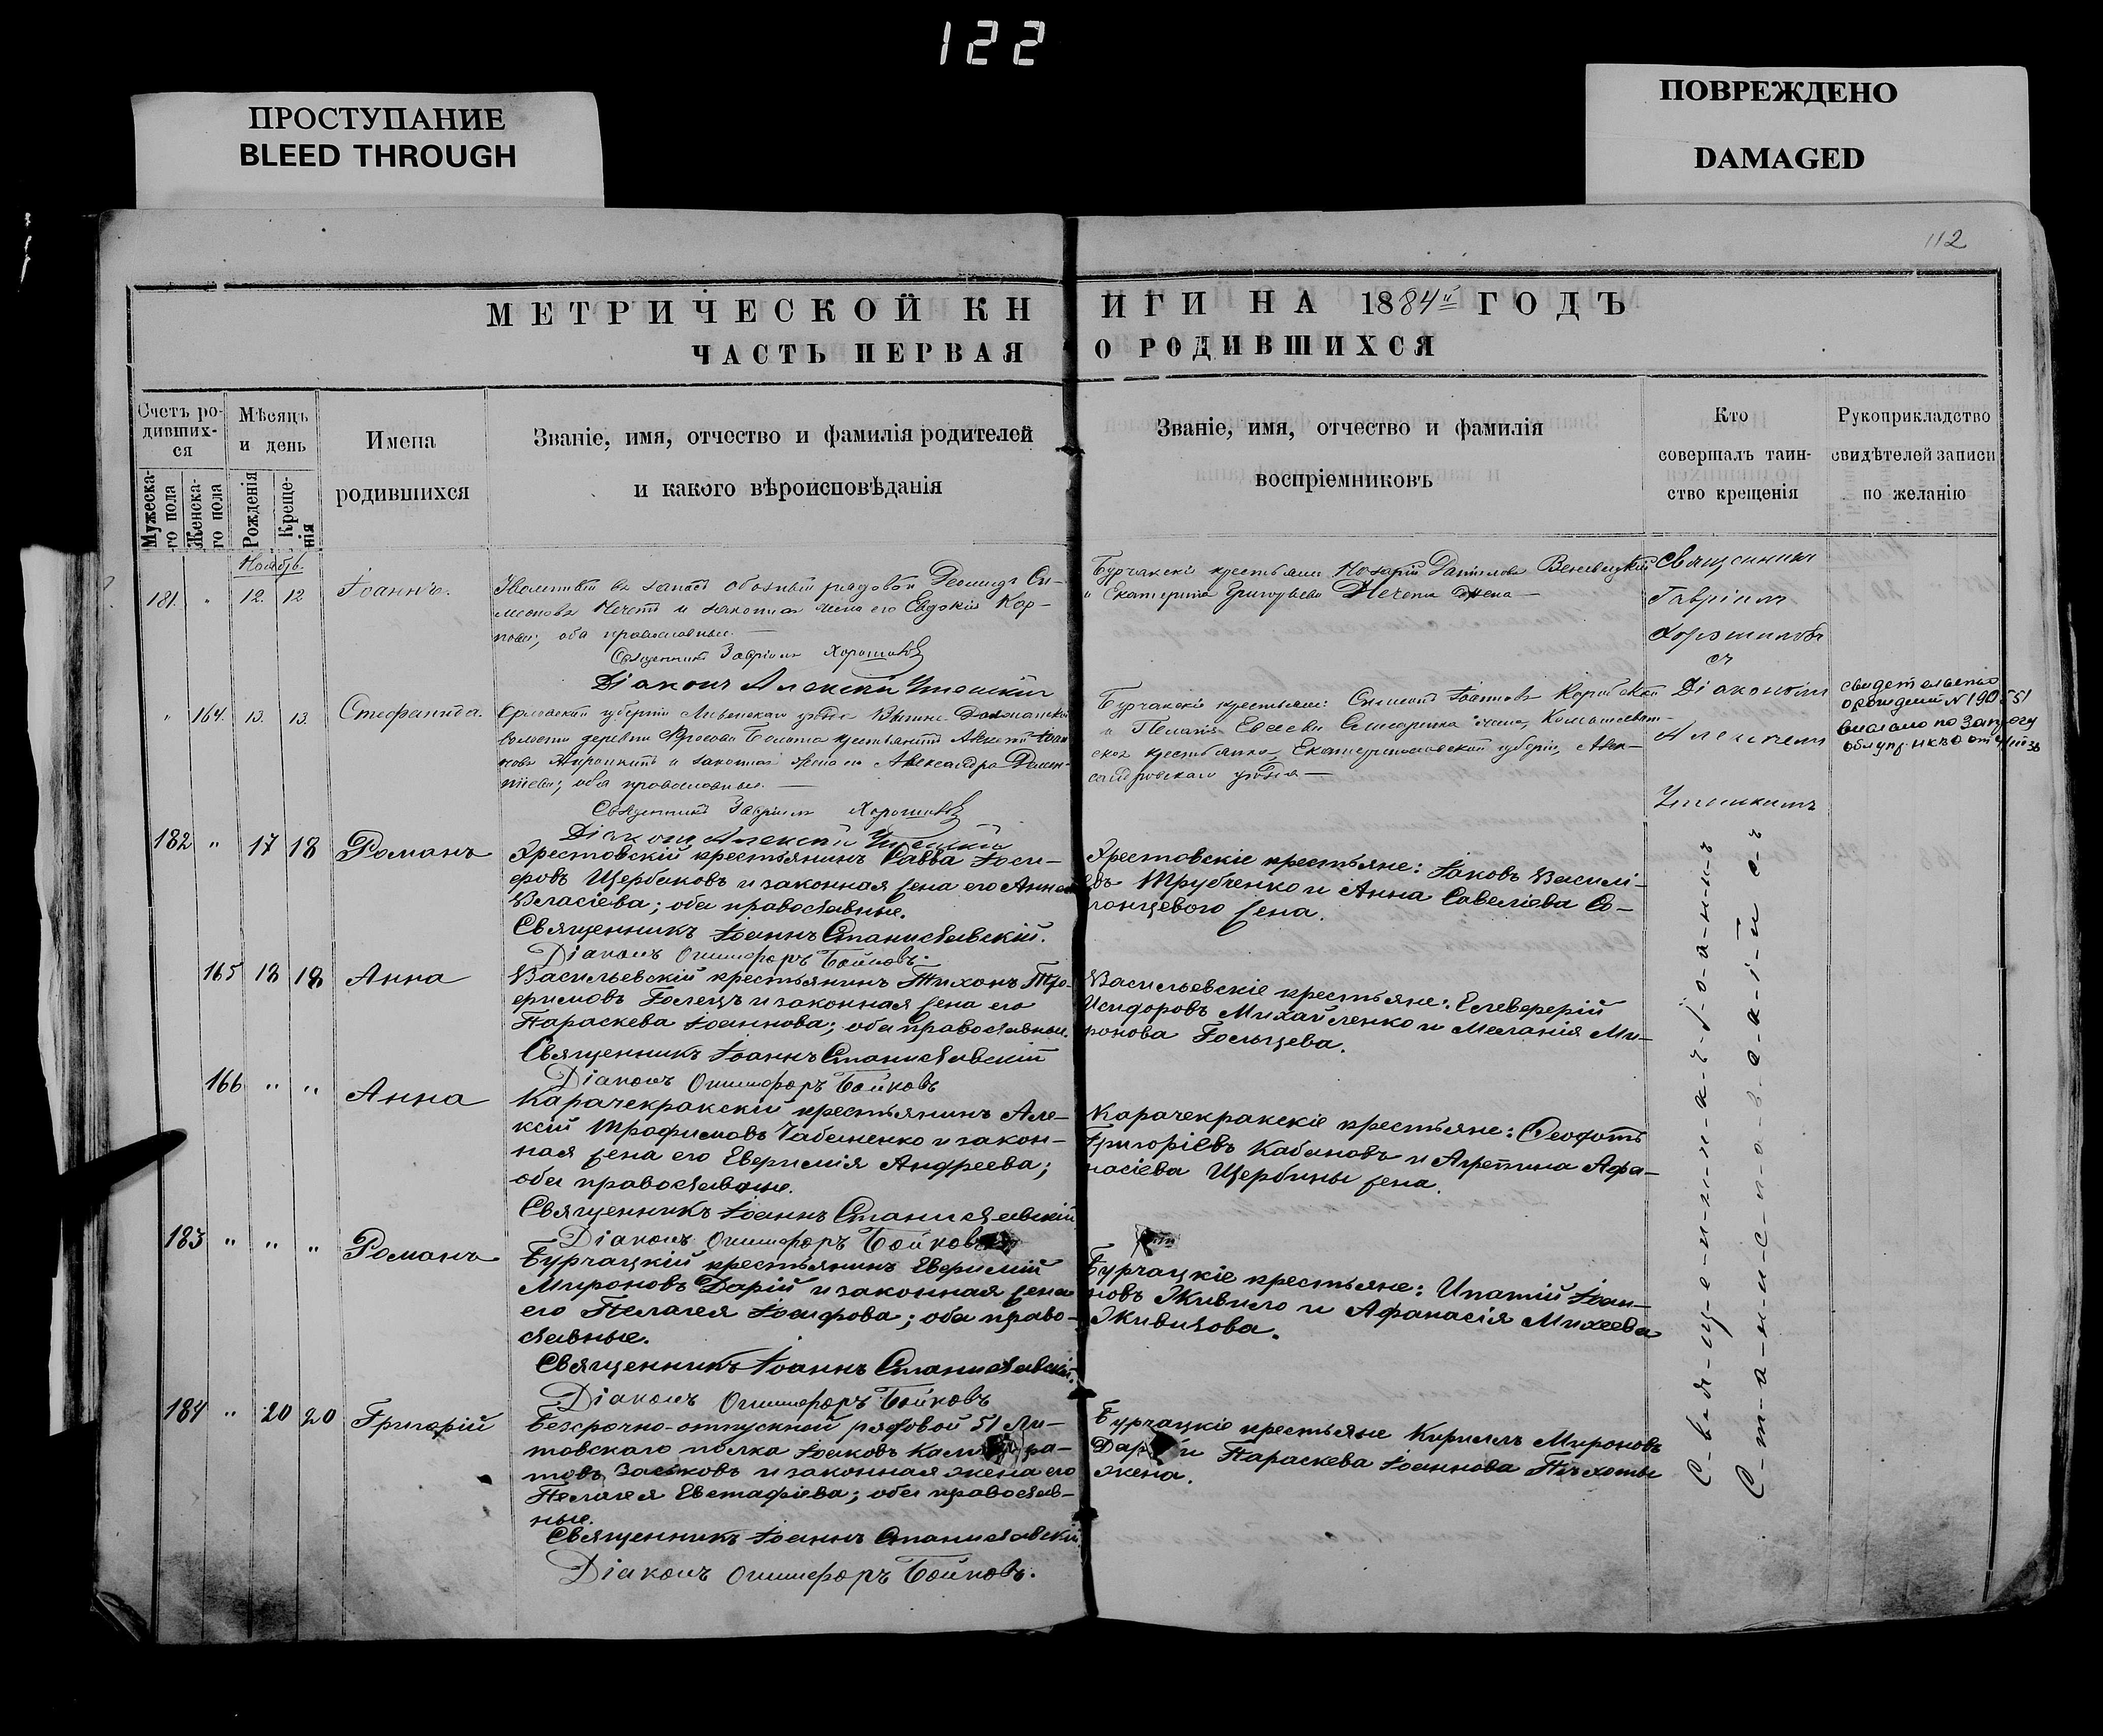 122
ПРОСТУПАНИЕ
BLEED THROUGH
ПОВРЕЖДЕНО
DAMAGED
112
МЕТРИЧЕСКОЙ КНИГИ НА 1884й ГОДЪ
ЧАСТЬ ПЕРВАЯ О РОДИВШИХСЯ
Счетъ ро-
дивших-
ся
Мужеска-
го пола
Женска-
го пола
Мѣсяцъ
и день
Рожденія
Креще-
нія
Имена
родившихся
Званіе, имя, отчество и фамилія родителей
и какого вѣроисповѣданія
Званіе, имя, отчество и фамилія
воспріемниковъ
Кто
совершалъ таин-
ство крещенія
Рукоприкладство
свидѣтелей записи
по желанію
Ноябрь.
181. " 12. 12
Іоаннъ.
Уволенный въ запасъ обозный рядовой Леонидъ Си-
меоновъ Нечетъ и законная жена его Евдокія Кар-
пова; оба православные.
Священникъ Гавріилъ Хорошковъ
Діаконъ Алексій
Бурчакскіе крестьяне Назарій Даниловъ
и Екатерина Григорьева жена
Священникъ
Гавріилъ
Хорошковъ
съ
Діакономъ
Алексіемъ
" 164. 13. 13.
Стефанида.
Орловской губерніи Ливенскаго уѣзда
волости деревни крестьянинъ
и законная жена его Александра
оба православные.
Священникъ Гавріилъ Хорошковъ
Діаконъ Алексій
Бурчакскіе крестьяне: Симеонъ Іоанновъ
и Пелагія жена,
крестьянка Екатеринославской губерніи, Алек-
сандровскаго уѣзда
свидетельство
о рождении № 190551
182 " 17 18
Романъ
Хрестовскій крестьянинъ Савва Іоси-
фовъ Щербаковъ и законная жена его Анна
Власіева; оба православные.
Священникъ Іоаннъ Станиславскій.
Діаконъ Онисифоръ Бойковъ.
Хрестовскіе крестьяне: Іаковъ Василі-
евъ Трубченко и Анна Савеліева Со-
лонцевого жена.
165 18 18
Анна
Васильевскій крестьянинъ Тихонъ Тро-
фимовъ Голецъ и законная жена его
Параскева Іоаннова; оба православные.
Священникъ Іоаннъ Станиславскій
Діаконъ Онисифоръ Бойковъ
Васильевскіе крестьяне: Елевферій
Исидоровъ Михайленко и Меланія Ми-
ронова Гольцева.
166 " "
Анна
Карачекракскій крестьянинъ Але-
ксій Трофимовъ Чабаненко и закон-
ная жена его Евфимія Андреева;
оба православные.
Священникъ Іоаннъ Станиславскій
Діаконъ Онисифоръ Бойковъ
Карачекракскіе крестьяне: Феофотъ
Григоріевъ Кабановъ и Агрепина Афа-
насіева Щербины жена.
183 " " "
Романъ
Бурчацкій крестьянинъ Евфимій
Мироновъ Дарій и законная жена
его Пелагея Іосифова; оба право-
славные.
Священникъ Іоаннъ Станиславскій.
Діаконъ Онисифоръ Бойковъ
Бурчацкіе крестьяне: Ипатій Іоан-
новъ Живило и Афанасія Михеева
Живилова.
184 " 20 20
Григорій
Безсрочно-отпускной рядовой 51 Ли-
товскаго полка Іаковъ
товъ Заськовъ и законная жена его
Пелагея Евстафіева; оба православ-
ные.
Священникъ Іоаннъ Станиславскій
Діаконъ Онисифоръ Бойковъ.
Бурчацкіе крестьяне Кириллъ Мироновъ
и Параскева Іоаннова Пѣхоты
жена.
С-в-я-щ-е-н-н-и-к-ъ-І-о-а-н-н-ъ
С-т-а-н-и-с-л-а-в-с-к-і-й